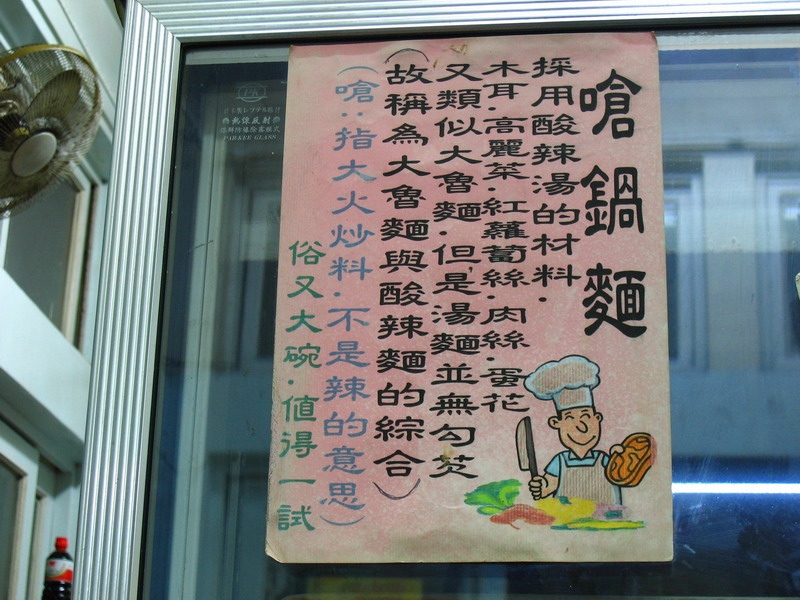 嗆鍋麵
採用酸辣湯的材料.
木耳.高麗菜.紅蘿蔔絲.肉絲.蛋花
又類似大魯麵.但是湯麵並無勾芡
(故稱為大魯麵與酸辣麵的綜合)
(嗆:指大火炒料.不是辣的意思)
俗又大碗.值得一試
PARKER GLASS